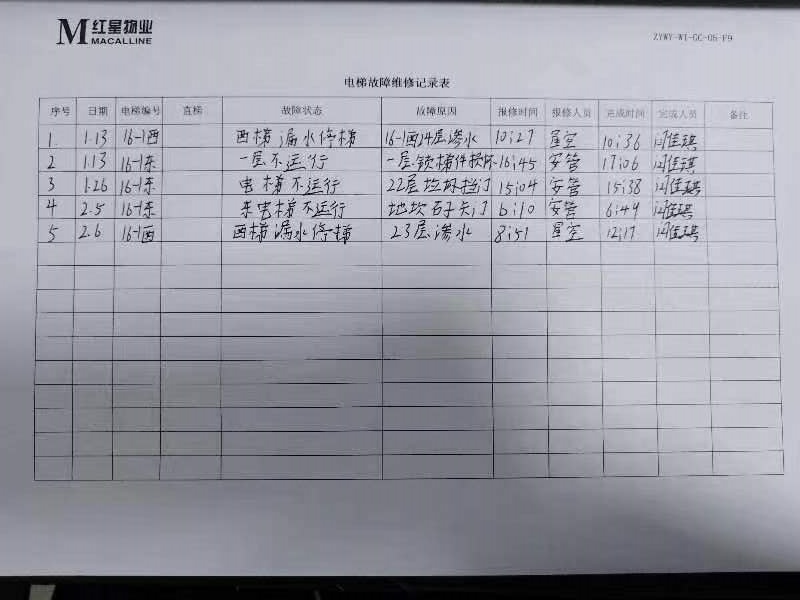 M 红星物业
MACALLINE
ZYWY-WI-GC-05-F9
电梯故障维修记录表
序号 日期 电梯编号 直梯 故障状态 故障原因 报修时间 报修人员 完成时间 完成人员 备注
1. 1.13 16-1西 西梯漏水停梯 16-1西14层渗水 10:27 星空 10:36 佳琪
2 1.13 16-1东 一层不运行 一层锁梯件损坏 16:45 安管 17:06 佳琪
3 1.26 16-1东 电梯不运行 22层垃圾挡门 15:04 安管 15:38 佳琪
4 2.5 16-1东 东电梯不运行 地坎石子卡门 6:10 安管 6:49 佳琪
5 2.6 16-1西 西梯漏水停梯 23层渗水 8:51 星空 12:17 佳琪